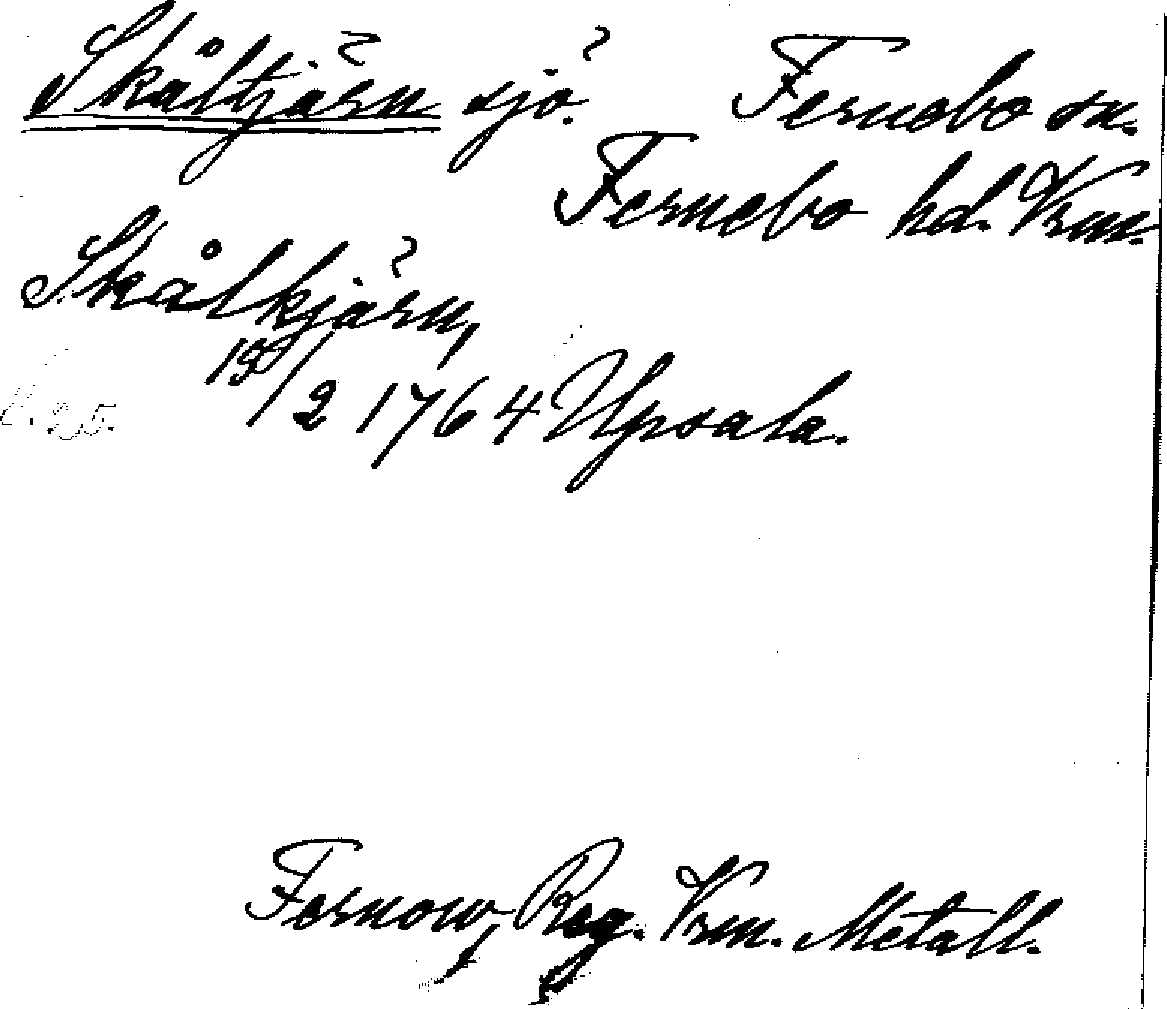 Skåltjärn sjö. Fernebo sn.
Fernebo hd. Vrm.
Skålkjärn,
/2 1764 Upsala.
Fernow, Reg. Vrm. Metall.